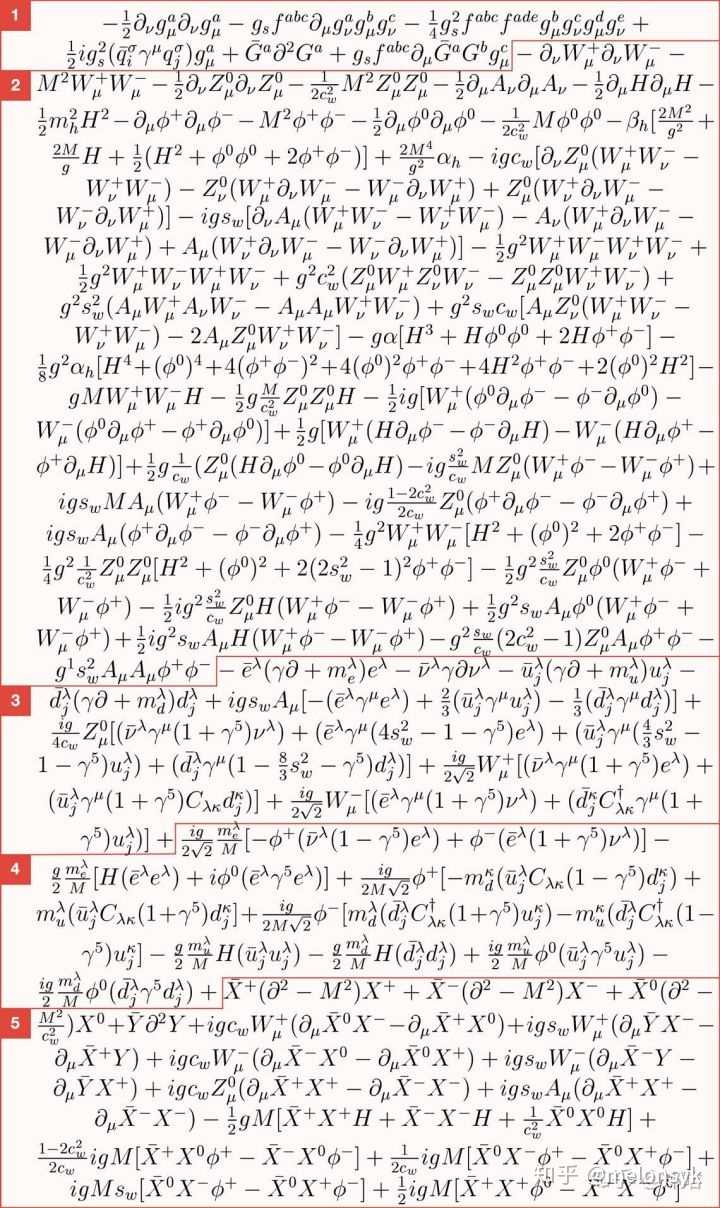 1 −½∂_νg^a_μ∂_νg^a_μ − g_sf^{abc}∂_μg^a_νg^b_μg^c_ν − ¼g²_sf^{abc}f^{ade}g^b_μg^c_νg^d_μg^e_ν +
½ig²_s(q̄^σ_iγ^μq^σ_j)g^a_μ + Ḡ^a∂²G^a + g_sf^{abc}∂_μḠ^aG^bg^c_μ − ∂_νW^+_μ∂_νW^-_μ −
2 M²W^+_μW^-_μ − ½∂_νZ^0_μ∂_νZ^0_μ − \frac{1}{2c²_w}M²Z^0_μZ^0_μ − ½∂_μA_ν∂_μA_ν − ½∂_μH∂_μH −
½m²_hH² − ∂_μϕ^+∂_μϕ^- − M²ϕ^+ϕ^- − ½∂_μϕ^0∂_μϕ^0 − \frac{1}{2c²_w}Mϕ^0ϕ^0 − β_h[\frac{2M²}{g²} +
\frac{2M}{g}H + ½(H² + ϕ^0ϕ^0 + 2ϕ^+ϕ^-)] + \frac{2M^4}{g²}α_h − igc_w[∂_νZ^0_μ(W^+_μW^-_ν −
W^+_νW^-_μ) − Z^0_ν(W^+_μ∂_νW^-_μ − W^-_μ∂_νW^+_μ) + Z^0_μ(W^+_ν∂_νW^-_μ −
W^-_ν∂_νW^+_μ)] − igs_w[∂_νA_μ(W^+_μW^-_ν − W^+_νW^-_μ) − A_ν(W^+_μ∂_νW^-_μ −
W^-_μ∂_νW^+_μ) + A_μ(W^+_ν∂_νW^-_μ − W^-_ν∂_νW^+_μ)] − ½g²W^+_μW^-_μW^+_νW^-_ν +
½g²W^+_μW^-_νW^+_μW^-_ν + g²c²_w(Z^0_μW^+_μZ^0_νW^-_ν − Z^0_μZ^0_μW^+_νW^-_ν) +
g²s²_w(A_μW^+_μA_νW^-_ν − A_μA_μW^+_νW^-_ν) + g²s_wc_w[A_μZ^0_ν(W^+_μW^-_ν −
W^+_νW^-_μ) − 2A_μZ^0_μW^+_νW^-_ν] − gα[H³ + Hϕ^0ϕ^0 + 2Hϕ^+ϕ^-] −
⅛g²α_h[H^4+(ϕ^0)^4+4(ϕ^+ϕ^-)²+4(ϕ^0)²ϕ^+ϕ^-+4H²ϕ^+ϕ^-+2(ϕ^0)²H²]−
gMW^+_μW^-_μH − ½g\frac{M}{c²_w}Z^0_μZ^0_μH − ½ig[W^+_μ(ϕ^0∂_μϕ^- − ϕ^-∂_μϕ^0) −
W^-_μ(ϕ^0∂_μϕ^+ − ϕ^+∂_μϕ^0)] + ½g[W^+_μ(H∂_μϕ^- − ϕ^-∂_μH) − W^-_μ(H∂_μϕ^+ −
ϕ^+∂_μH)] + ½g\frac{1}{c_w}(Z^0_μ(H∂_μϕ^0 − ϕ^0∂_μH) − ig\frac{s²_w}{c_w}MZ^0_μ(W^+_μϕ^- − W^-_μϕ^+) +
igs_wMA_μ(W^+_μϕ^- − W^-_μϕ^+) − ig\frac{1−2c²_w}{2c_w}Z^0_μ(ϕ^+∂_μϕ^- − ϕ^-∂_μϕ^+) +
igs_wA_μ(ϕ^+∂_μϕ^- − ϕ^-∂_μϕ^+) − ¼g²W^+_μW^-_μ[H² + (ϕ^0)² + 2ϕ^+ϕ^-] −
¼g²\frac{1}{c²_w}Z^0_μZ^0_μ[H² + (ϕ^0)² + 2(2s²_w − 1)²ϕ^+ϕ^-] − ½g²\frac{s²_w}{c_w}Z^0_μϕ^0(W^+_μϕ^- +
W^-_μϕ^+) − ½ig²\frac{s²_w}{c_w}Z^0_μH(W^+_μϕ^- − W^-_μϕ^+) + ½g²s_wA_μϕ^0(W^+_μϕ^- +
W^-_μϕ^+) + ½ig²s_wA_μH(W^+_μϕ^- − W^-_μϕ^+) − g²\frac{s_w}{c_w}(2c²_w − 1)Z^0_μA_μϕ^+ϕ^- −
g^1s²_wA_μA_μϕ^+ϕ^- − ē^λ(γ∂ + m^λ_e)e^λ − ν̄^λγ∂ν^λ − ū^λ_j(γ∂ + m^λ_u)u^λ_j −
3 d̄^λ_j(γ∂ + m^λ_d)d^λ_j + igs_wA_μ[−(ē^λγ^μe^λ) + ⅔(ū^λ_jγ^μu^λ_j) − ⅓(d̄^λ_jγ^μd^λ_j)] +
\frac{ig}{4c_w}Z^0_μ[(ν̄^λγ^μ(1 + γ^5)ν^λ) + (ē^λγ^μ(4s²_w − 1 − γ^5)e^λ) + (ū^λ_jγ^μ(\frac{4}{3}s²_w −
1 − γ^5)u^λ_j) + (d̄^λ_jγ^μ(1 − \frac{8}{3}s²_w − γ^5)d^λ_j)] + \frac{ig}{2√2}W^+_μ[(ν̄^λγ^μ(1 + γ^5)e^λ) +
(ū^λ_jγ^μ(1 + γ^5)C_{λκ}d^κ_j)] + \frac{ig}{2√2}W^-_μ[(ē^λγ^μ(1 + γ^5)ν^λ) + (d̄^κ_jC^†_{λκ}γ^μ(1 +
γ^5)u^λ_j)] + \frac{ig}{2√2}\frac{m^λ_e}{M}[−ϕ^+(ν̄^λ(1 − γ^5)e^λ) + ϕ^-(ē^λ(1 + γ^5)ν^λ)] −
4 \frac{g}{2}\frac{m^λ_e}{M}[H(ē^λe^λ) + iϕ^0(ē^λγ^5e^λ)] + \frac{ig}{2M√2}ϕ^+[−m^κ_d(ū^λ_jC_{λκ}(1 − γ^5)d^κ_j) +
m^λ_u(ū^λ_jC_{λκ}(1+γ^5)d^κ_j] + \frac{ig}{2M√2}ϕ^-[m^λ_d(d̄^λ_jC^†_{λκ}(1+γ^5)u^κ_j) − m^κ_u(d̄^λ_jC^†_{λκ}(1−
γ^5)u^κ_j] − \frac{g}{2}\frac{m^λ_u}{M}H(ū^λ_ju^λ_j) − \frac{g}{2}\frac{m^λ_d}{M}H(d̄^λ_jd^λ_j) + \frac{ig}{2}\frac{m^λ_u}{M}ϕ^0(ū^λ_jγ^5u^λ_j) −
\frac{ig}{2}\frac{m^λ_d}{M}ϕ^0(d̄^λ_jγ^5d^λ_j) + X̄^+(∂² − M²)X^+ + X̄^-(∂² − M²)X^- + X̄^0(∂² −
5 \frac{M²}{c²_w})X^0 + Ȳ∂²Y + igc_wW^+_μ(∂_μX̄^0X^- − ∂_μX̄^+X^0) + igs_wW^+_μ(∂_μȲX^- −
∂_μX̄^+Y) + igc_wW^-_μ(∂_μX̄^-X^0 − ∂_μX̄^0X^+) + igs_wW^-_μ(∂_μX̄^-Y −
∂_μȲX^+) + igc_wZ^0_μ(∂_μX̄^+X^+ − ∂_μX̄^-X^-) + igs_wA_μ(∂_μX̄^+X^+ −
∂_μX̄^-X^-) − ½gM[X̄^+X^+H + X̄^-X^-H + \frac{1}{c²_w}X̄^0X^0H] +
\frac{1−2c²_w}{2c_w}igM[X̄^+X^0ϕ^+ − X̄^-X^0ϕ^-] + \frac{1}{2c_w}igM[X̄^0X^-ϕ^+ − X̄^0X^+ϕ^-] +
igMs_w[X̄^0X^-ϕ^+ − X̄^0X^+ϕ^-] + ½igM[X̄^+X^+ϕ^0 − X̄^-X^-ϕ^0]
知乎 @melonsyk